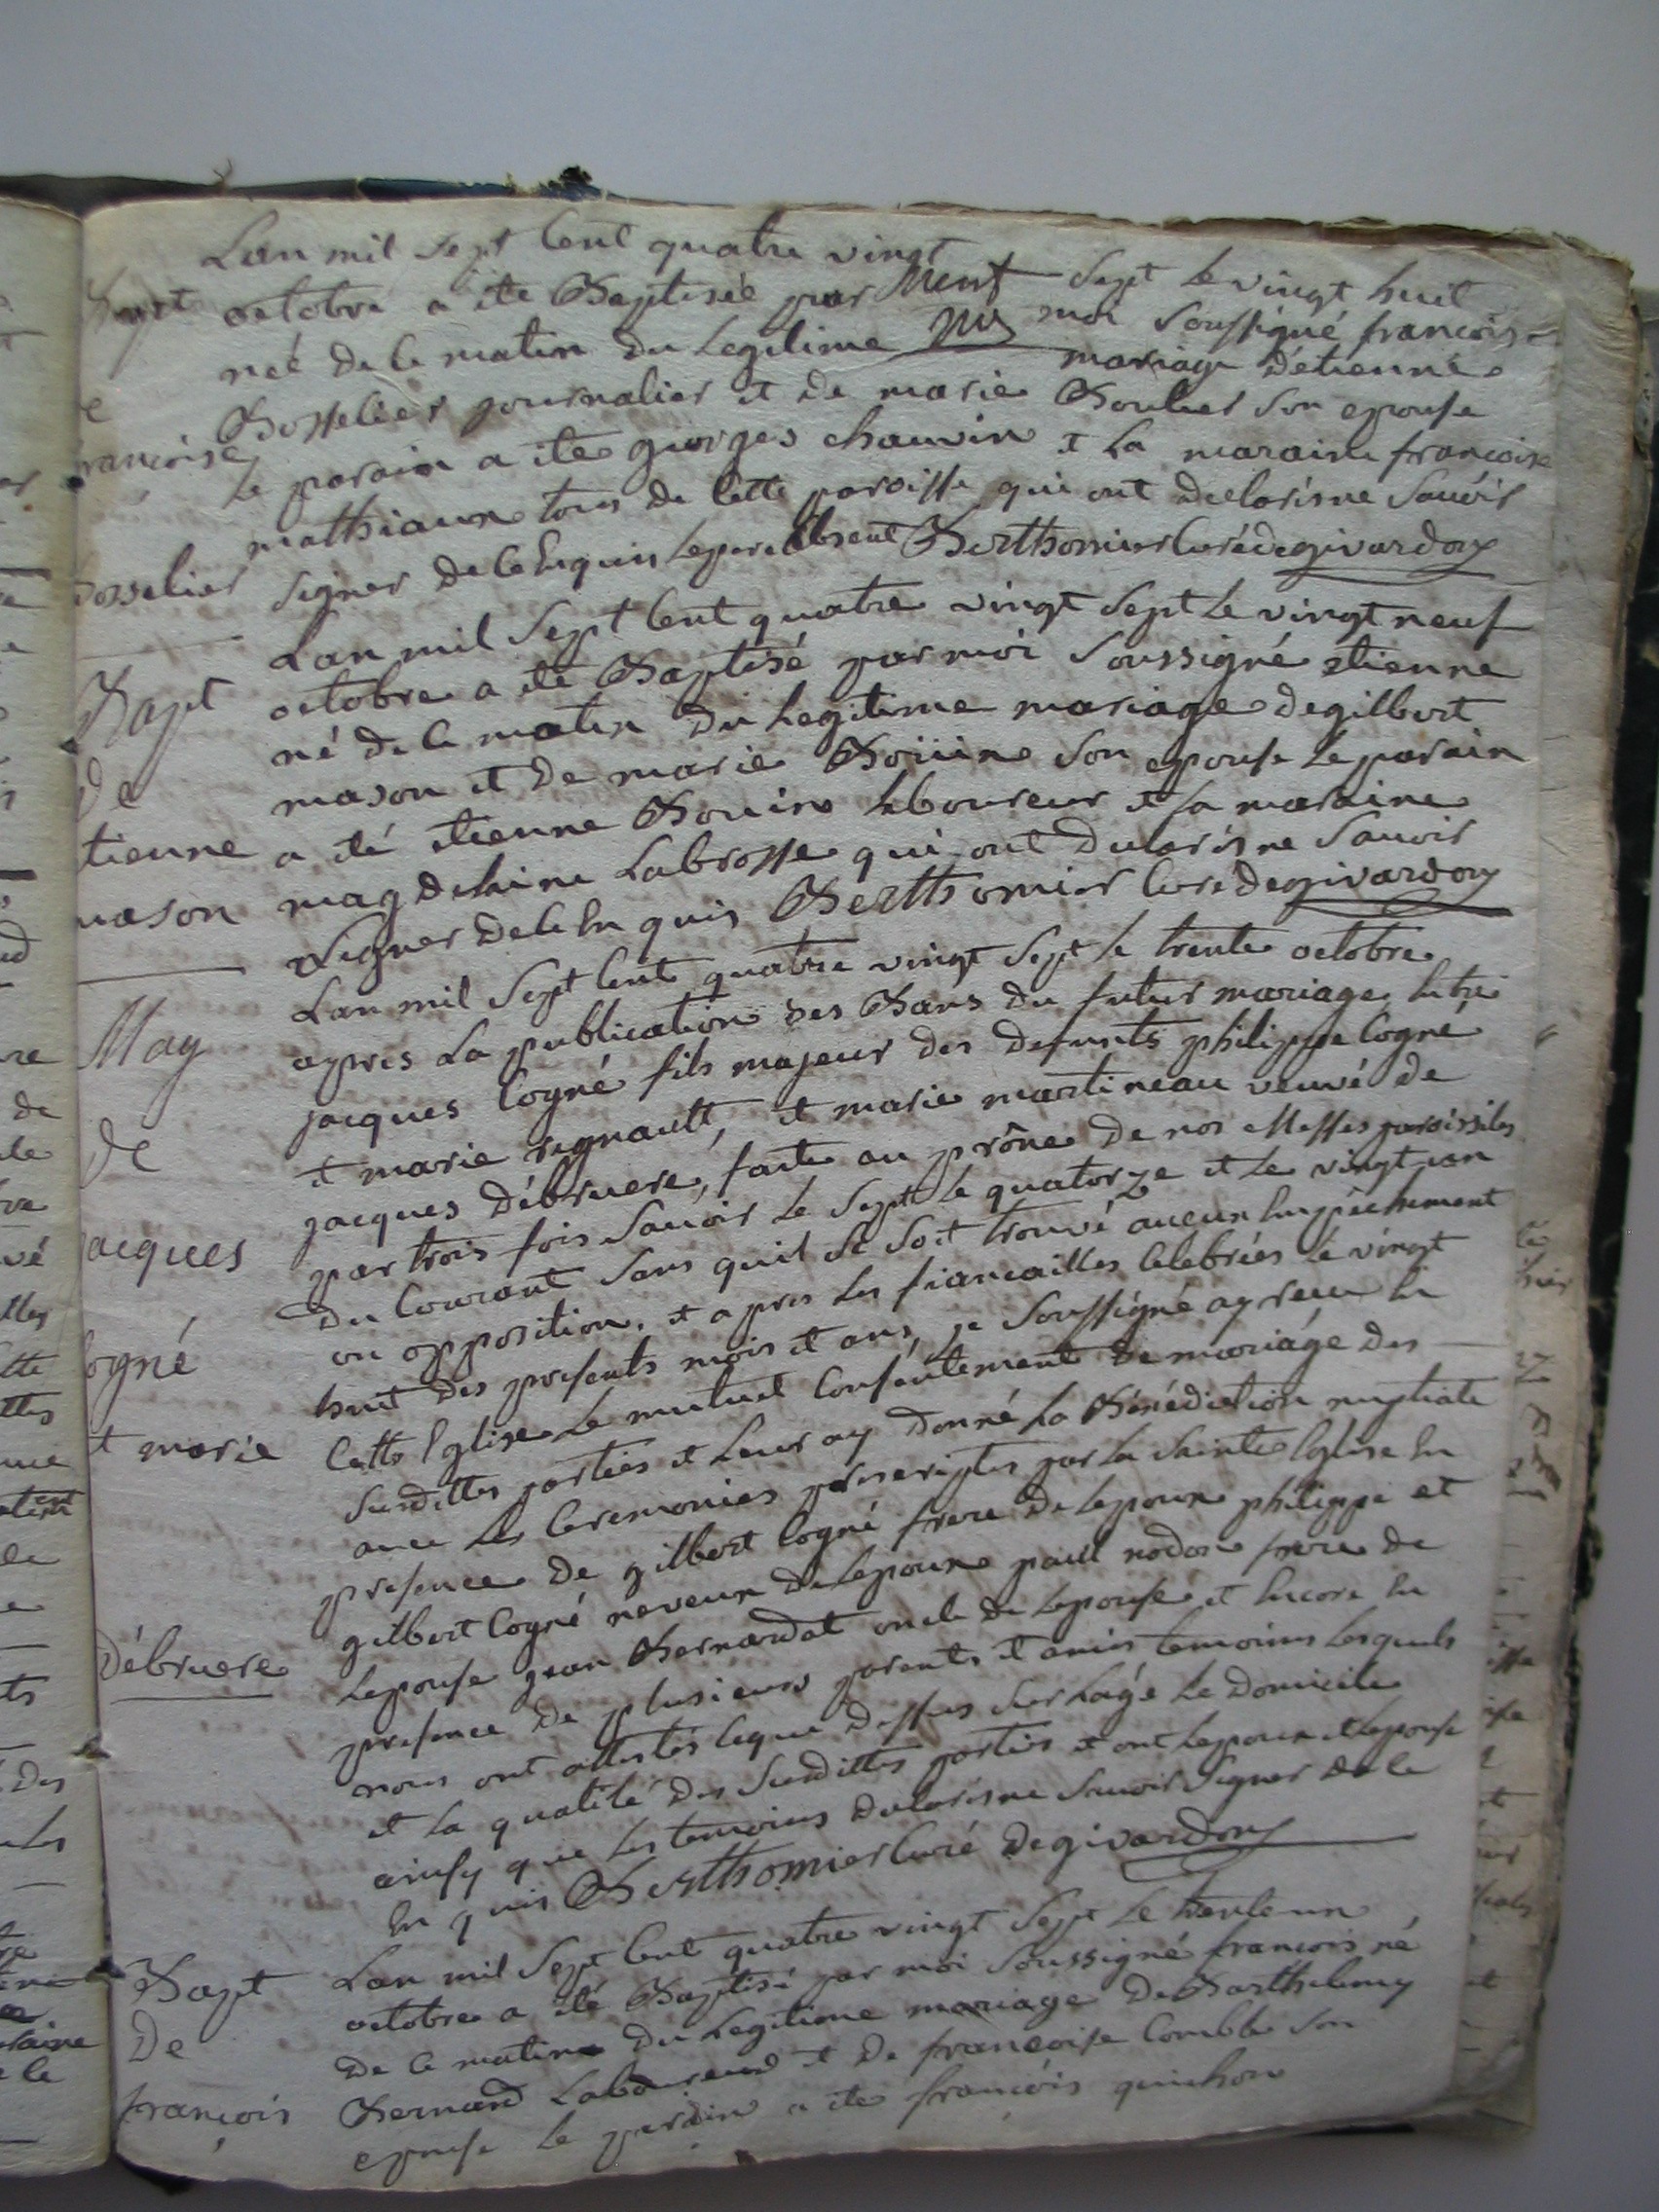 Lan mil Sept Cent quatre vingt Sept le vingt huit
Bapt
octobre a ete Baptisée par moi Soussigné francoise
neé de ce matin du Legitime mariage d'etienne
de
Bosselier journalier et de marie Boulier Son epouse
francoise
le parain a ete georges chauvin et La maraine francoise
mathiaux tous de Cette paroisse qui ont declarés ne Sauoir
Bosselier
Signer de ce Enquis le pere absent Berthomier Curé de givardon
Lan mil Sept Cent quatre vingt Sept le vingt neuf
Bapt
octobre a été Baptisé par moi Soussigné etienne
né de ce matin du Legitime mariage de gilbert
de
mason et de marie Boüin Son epouse Le parain
tienne
a été etienne Bouin laboureur et la maraine
magdelaine Labrosse qui ont declarés ne Sauoir
mason
Signer de ce Enquis Berthomier Curé de givardon
Lan mil Sept Cent quatre vingt Sept le trente octobre
May
apres La publication des Bans du futur mariage Entre
jacques Cogné fils majeur des defunts philippe Cogné
de
et marie regnault, et marie martineau veuve de
jacques Débruere, faite au prône de nos Messes paroissiles
par trois fois Sauoir le Sept le quatorze et le vingt un
jacques
du Courant Sans quil Se Soit trouvé aucun Empechement
ou opposition, et apres les fiancailles Celebrées le vingt
Cogné
huit des presents mois et ans, je Soussigné ay reçu En
Cette Eglise Le mutuel Consentement de mariage des
et marie
Susdittes parties et Leur ay donné La Bénédiction nuptiale
auec les Ceremonies prescriptes par La Sainte Eglise En
presence de gilbert Cogné frere de Lepoux philippe et
gilbert Cogné neveux de Lepoux paul nodon frere de
Débruere
Lepouse jean Bernardat oncle de Lepouse et Encore En
presence de plusieurs parents et amis temoins Lesquels
nous ont attestés Ceque dessus Sur Lage Le domicile
et La qualité des Susdittes parties et ont Lepoux et Lepouse
ainsy que Les temoins declarés ne Sauoir Signer de ce
En quis Berthomier Curé de givardon
Lan mil Sept Cent quatre vingt Sept Le trente un
Bapt
octobre a été Baptisé par moi Soussigné francois né
de
de ce matin du Legitime mariage de Barthelemy
Bernard Laboureur et de francoise Comble Son
francois
epouse le parain a ete francois quichon